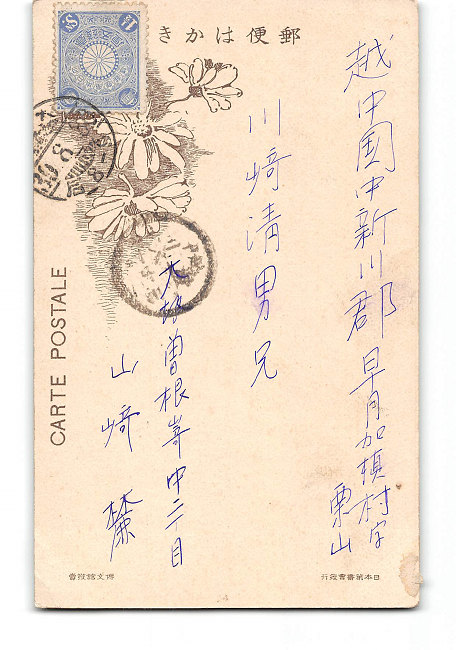 きかは便郵
越中国中新川郡早月加積村字
栗山
川﨑清男兄
大阪曽根崎中二丁目
山﨑麓
CARTE POSTALE
日本葉書會発行
博文館発賣